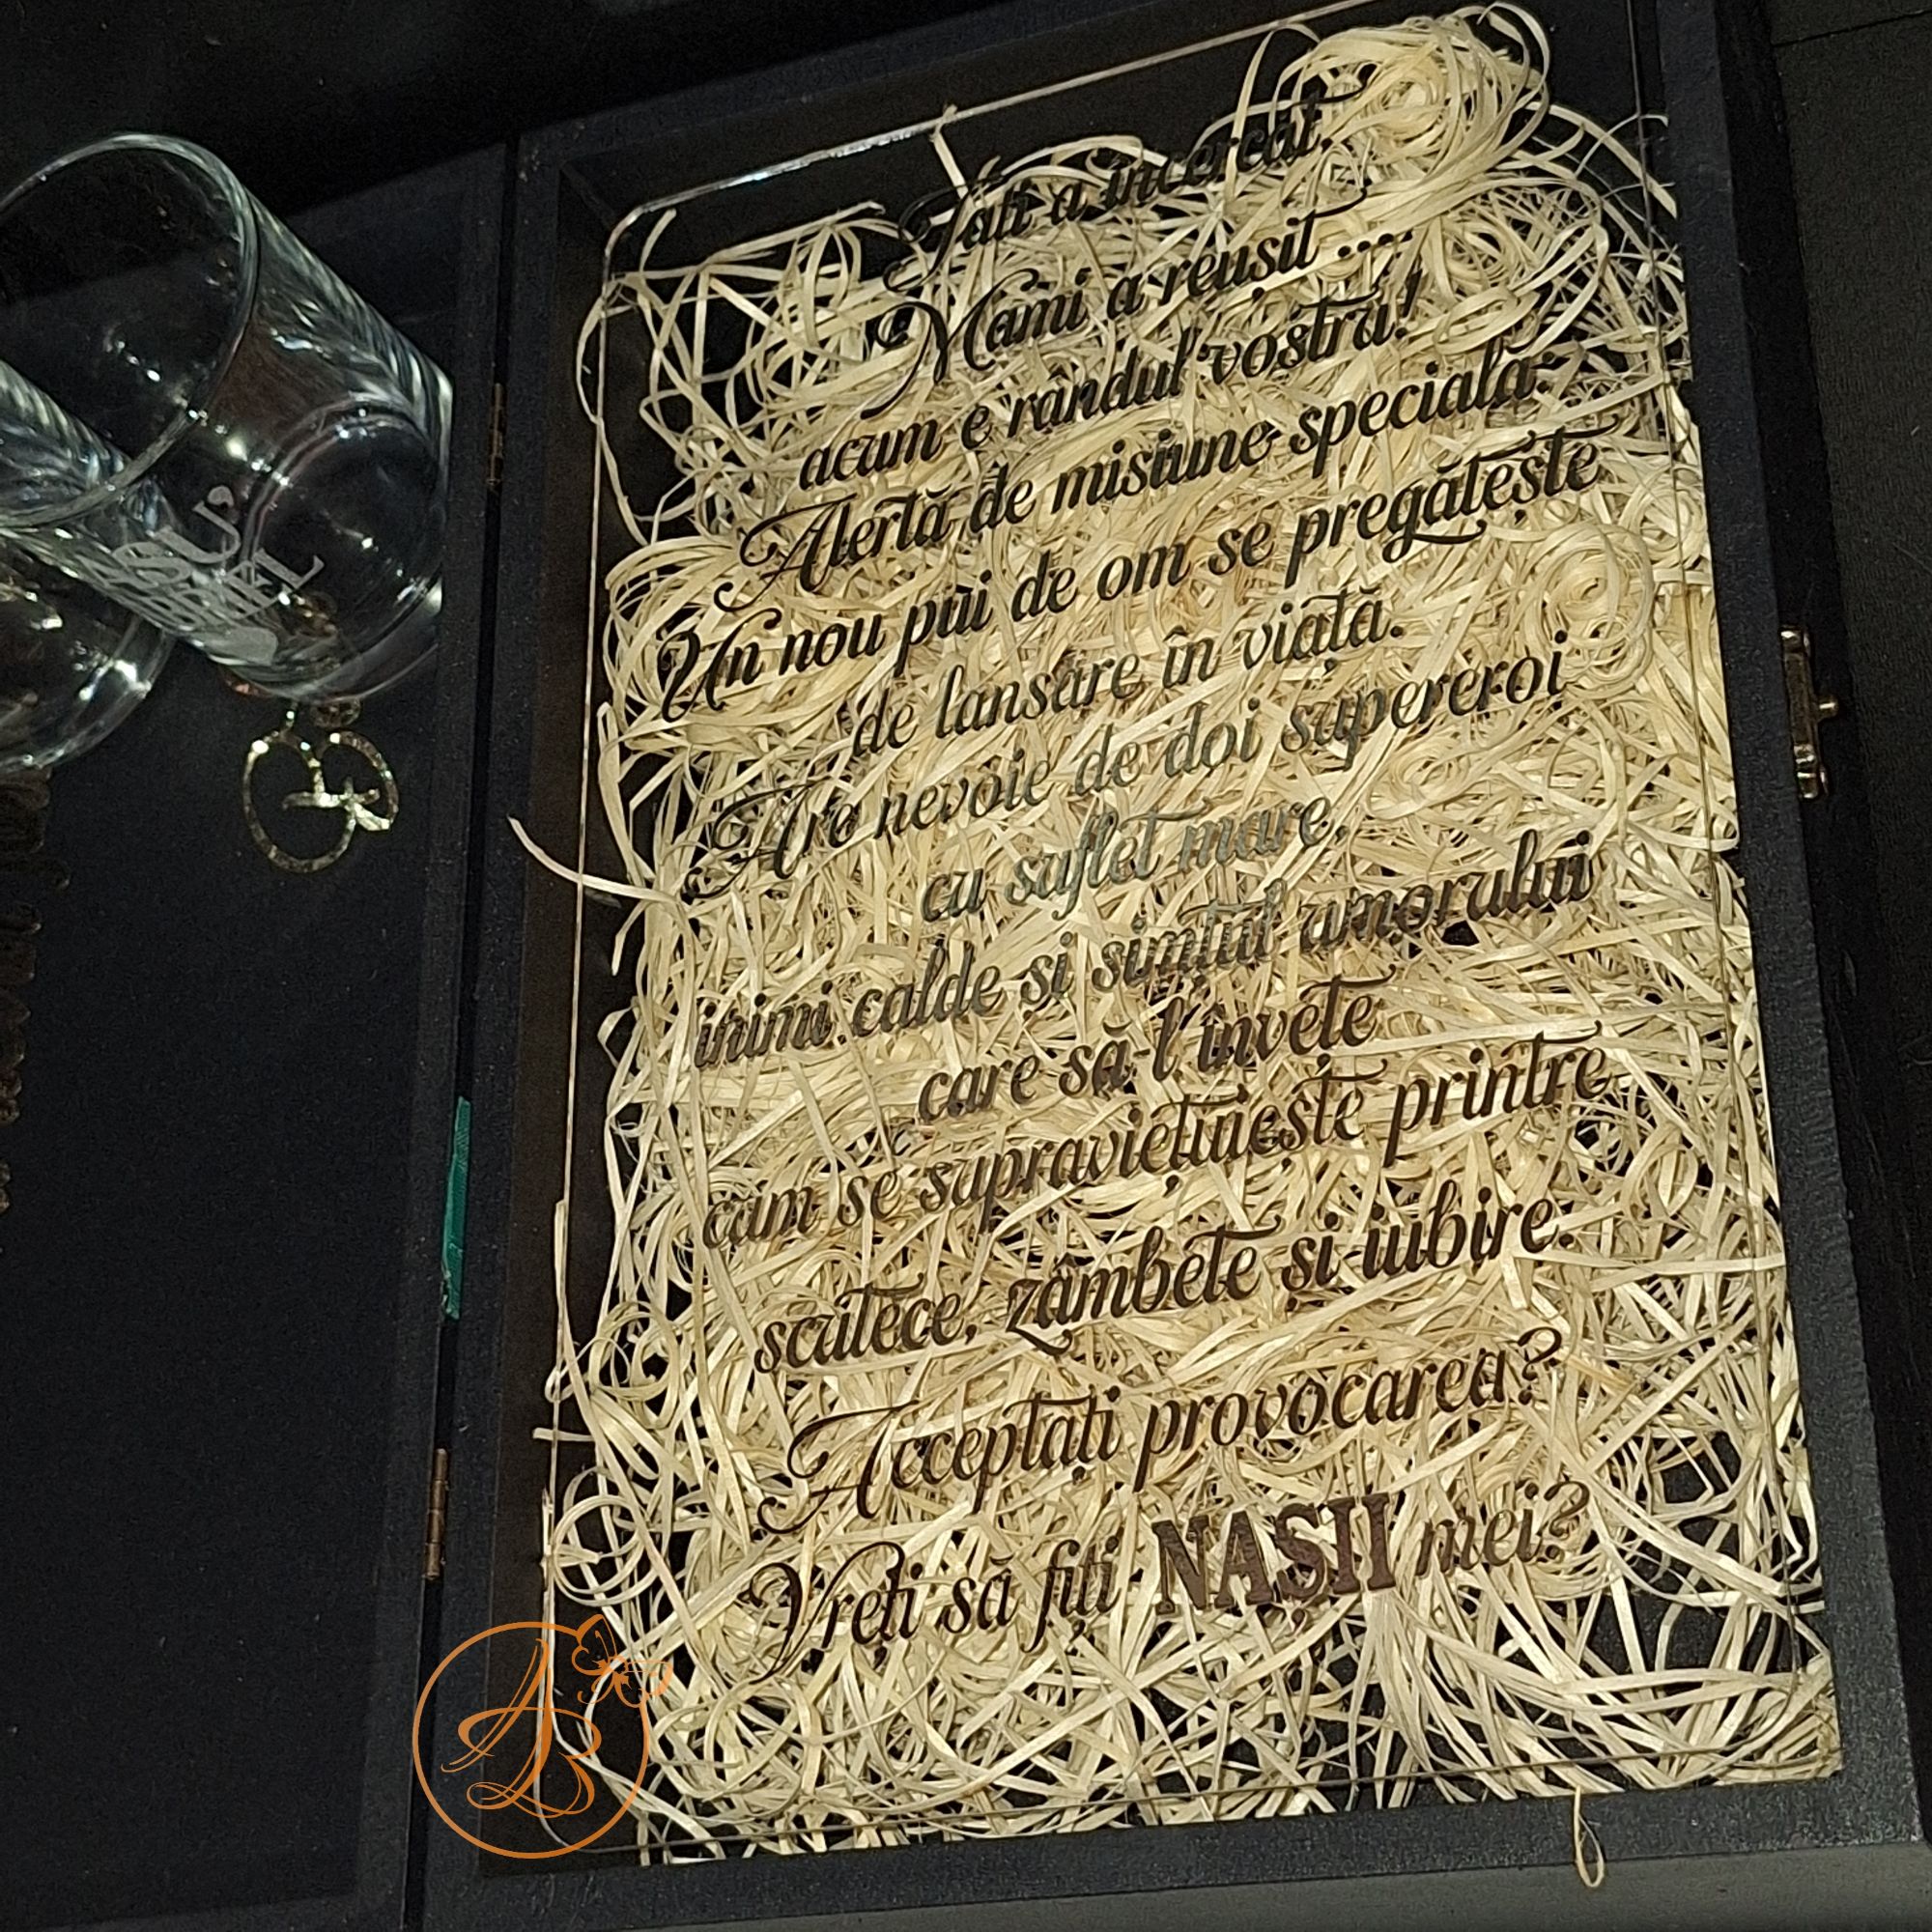 Tati a încercat,
Mami a reușit ....
acum e rândul vostru!
Alertă de misiune specială:
Un nou pui de om se pregătește
de lansare în viață.
Are nevoie de doi supereroi
cu suflet mare,
inimi calde si simțul umorului
care să-l învețe
cum se supraviețuieste printre
scutece, zâmbete si iubire.
Acceptați provocarea?
Vreți să fiți NAȘII mei?
AB